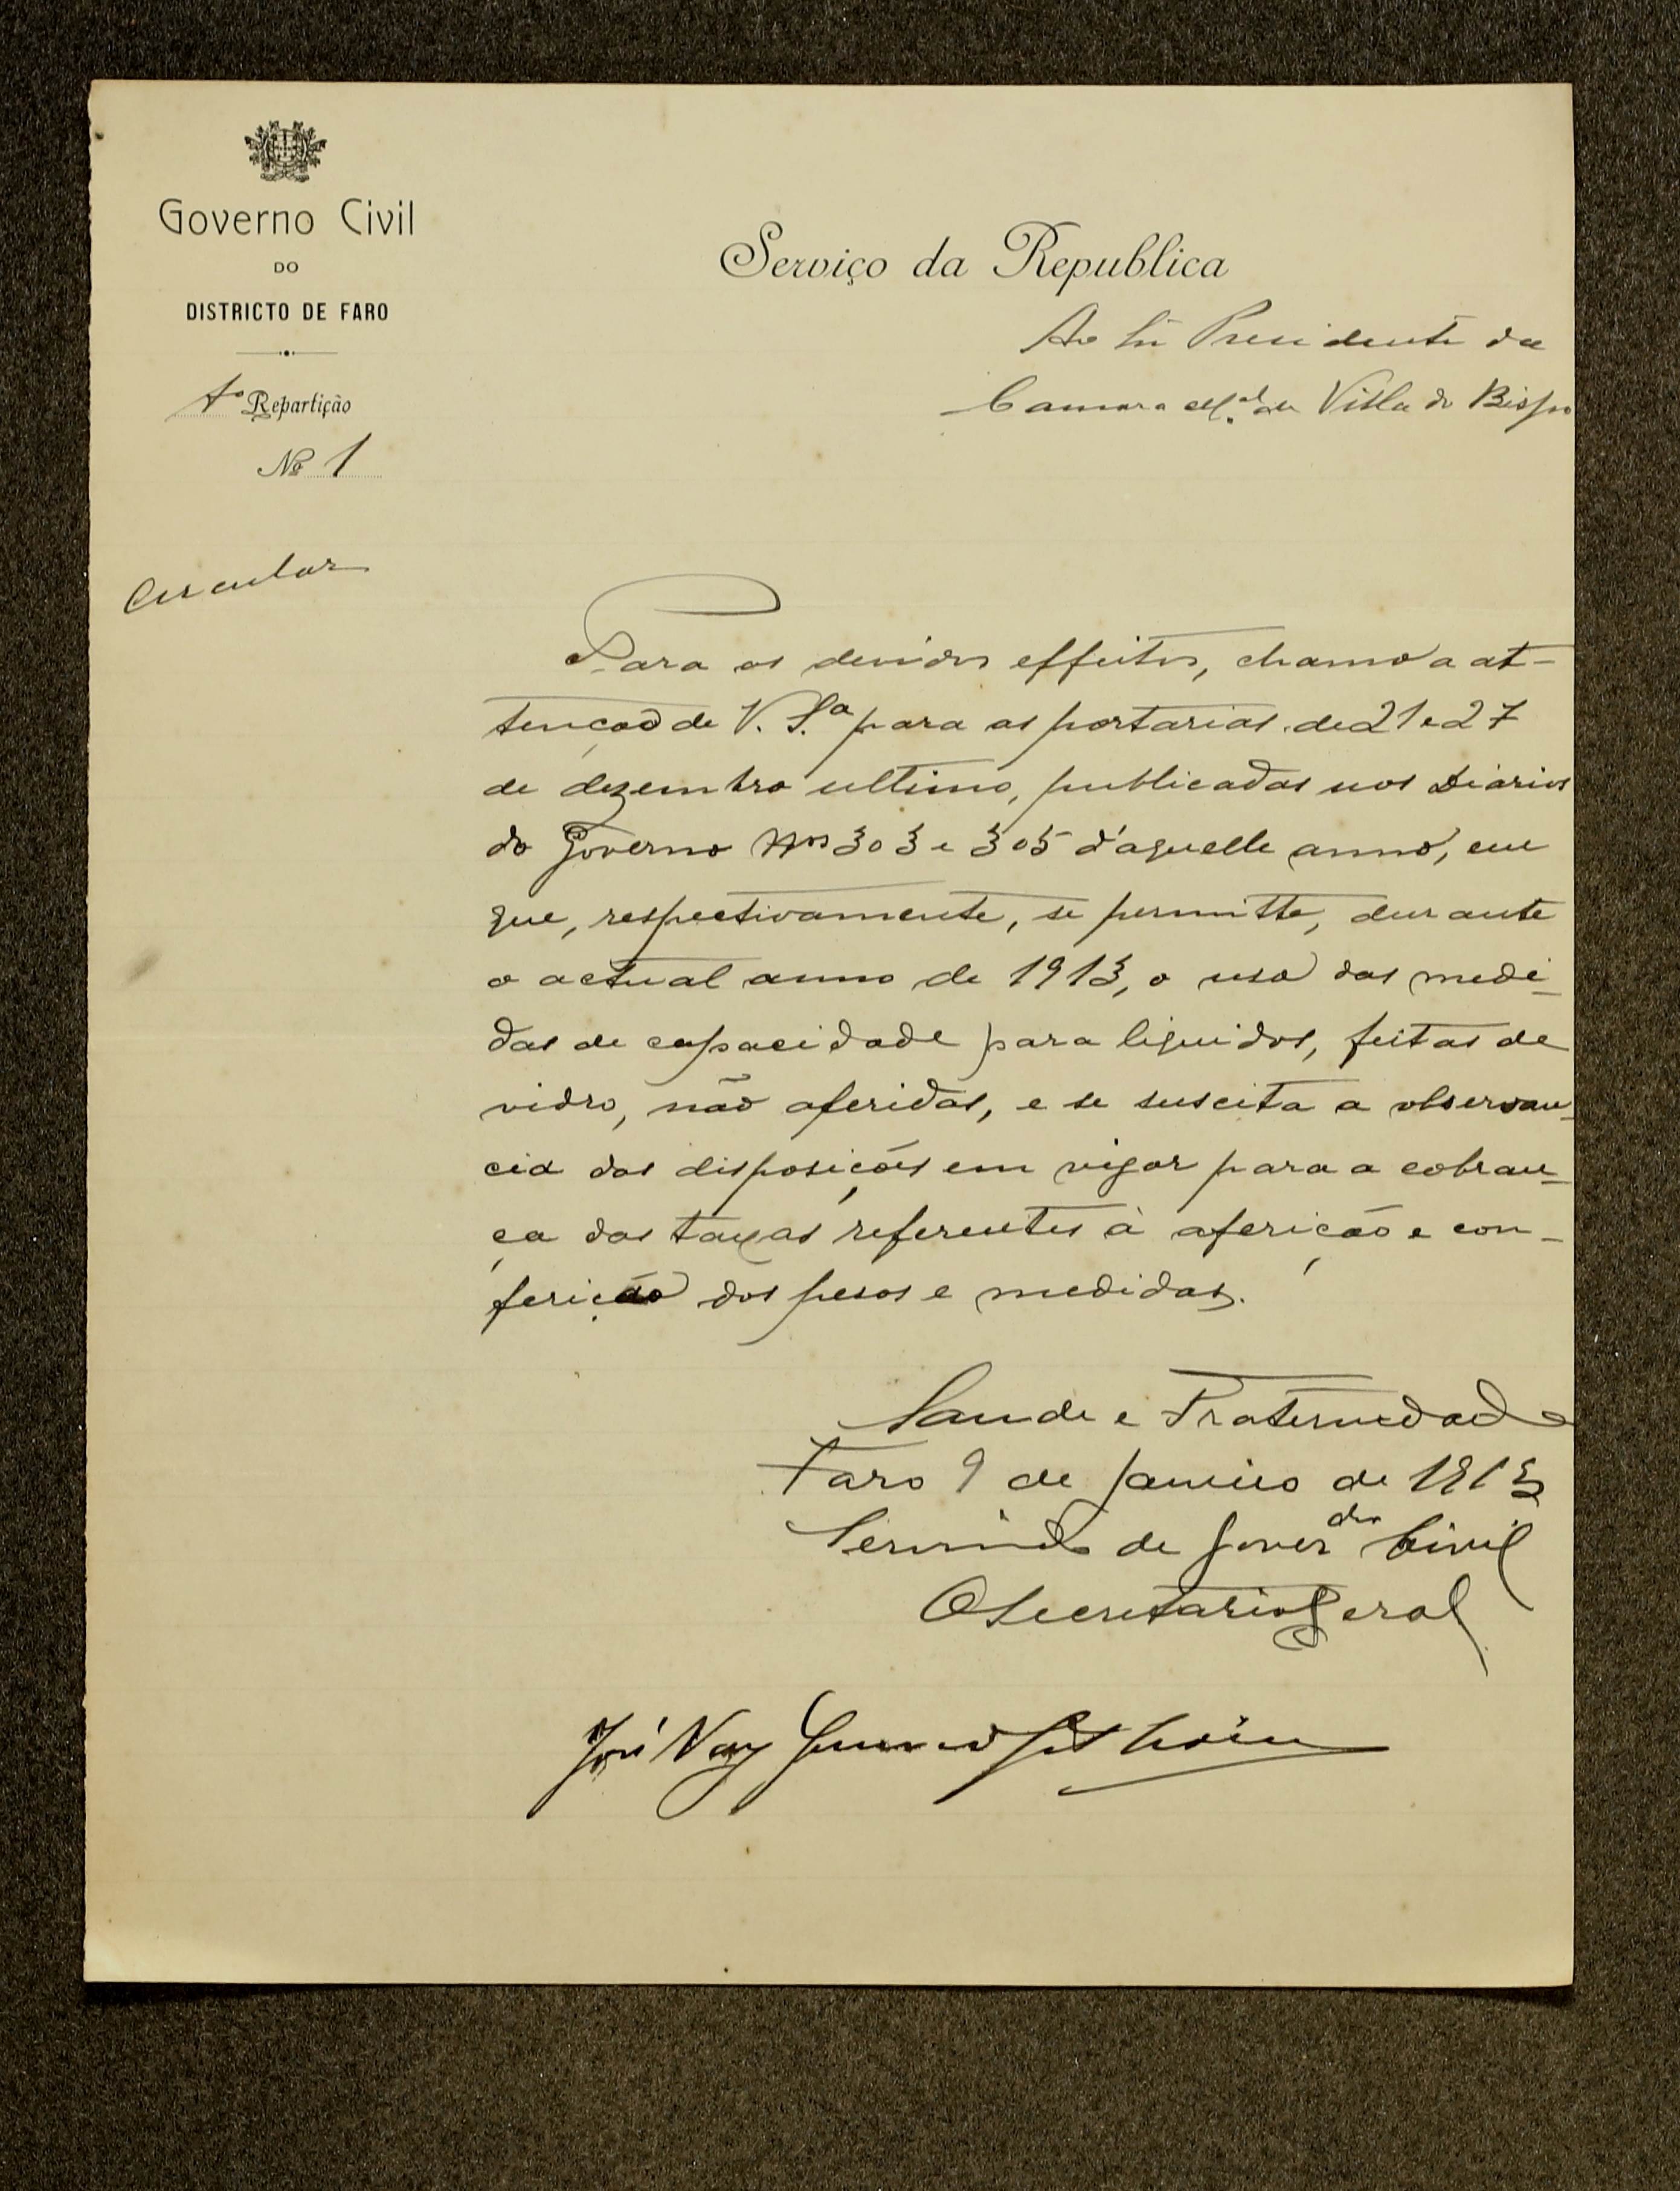 Governo Civil
DO
DISTRICTO DE FARO
1ª Repartição
Nº 1
Circular
Serviço da Republica
Ao Sr. Presidente da
Camara M.al de Villa do Bispo
Para os devidos effeitos, chamo a at-
tenção de V. S.ª para as portarias de 21 e 27
de dezembro ultimo, publicadas nos Diarios
do Governo Nos 303 e 305 d'aquelle anno, em
que, respectivamente, se permitte, durante
o actual anno de 1913, o uso das medi-
das de capacidade para liquidos, feitas de
vidro, não aferidas, e se suscita a observan-
cia das disposições em vigor para a cobran-
ça das taxas referentes à aferição e con-
ferição dos pesos e medidas.
Saude e Fraternidade
Faro 9 de Janeiro de 1913
Servindo de Gover.dor Civil
O Secretario Geral
José Vaz